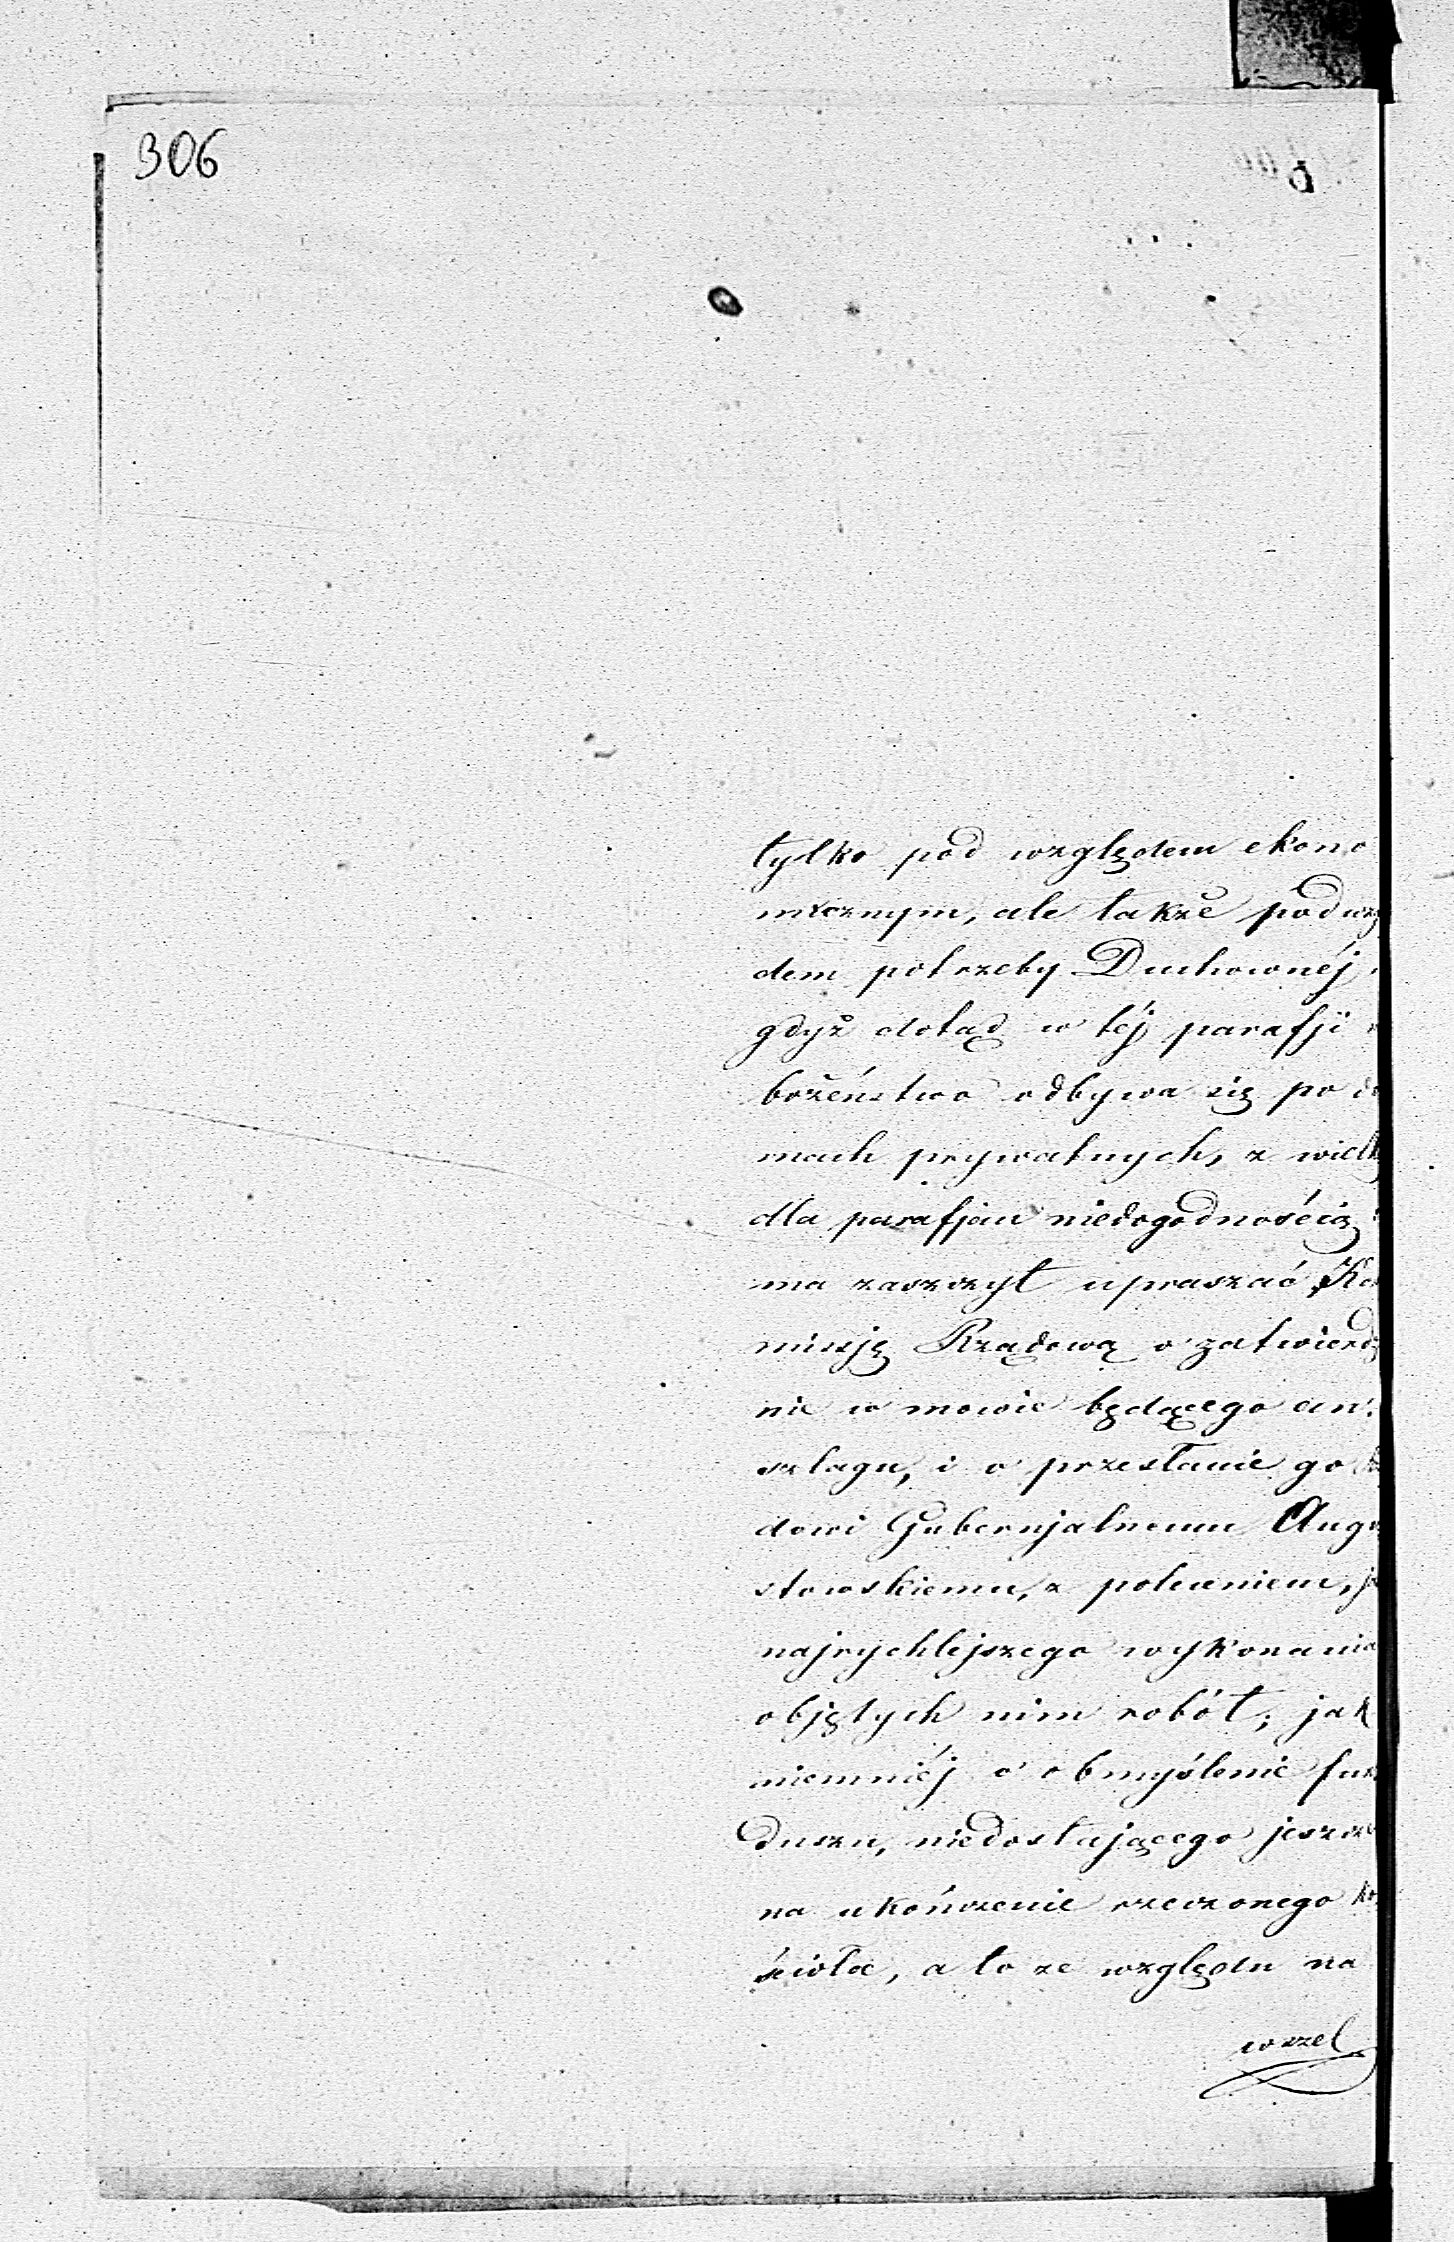 306
tylko pod względem ekono
micznym, ale także pod wzg
dem potrzeby Duchownéj,
gdyż dotąd w téj parafji
bożeństwo odbywa się po do
mach prywatnych, z wielk
dla parafjan niedogodnością
ma zaszczyt upraszać Ko
missję Rządową o zatwierdz
nie w mowie będącego an
szlagu, i o przesłanie go
dowi Gubernjalnemu Augu
stowskiemu, z poleceniem, ja
najrychlejszego wykonania
objętych nim robót; jak
niemniéj o obmyślenie fun
duszu, niedostającego jeszcze
na ukończenie rzeczonego ko
ścioła, a to ze względu na
wszel